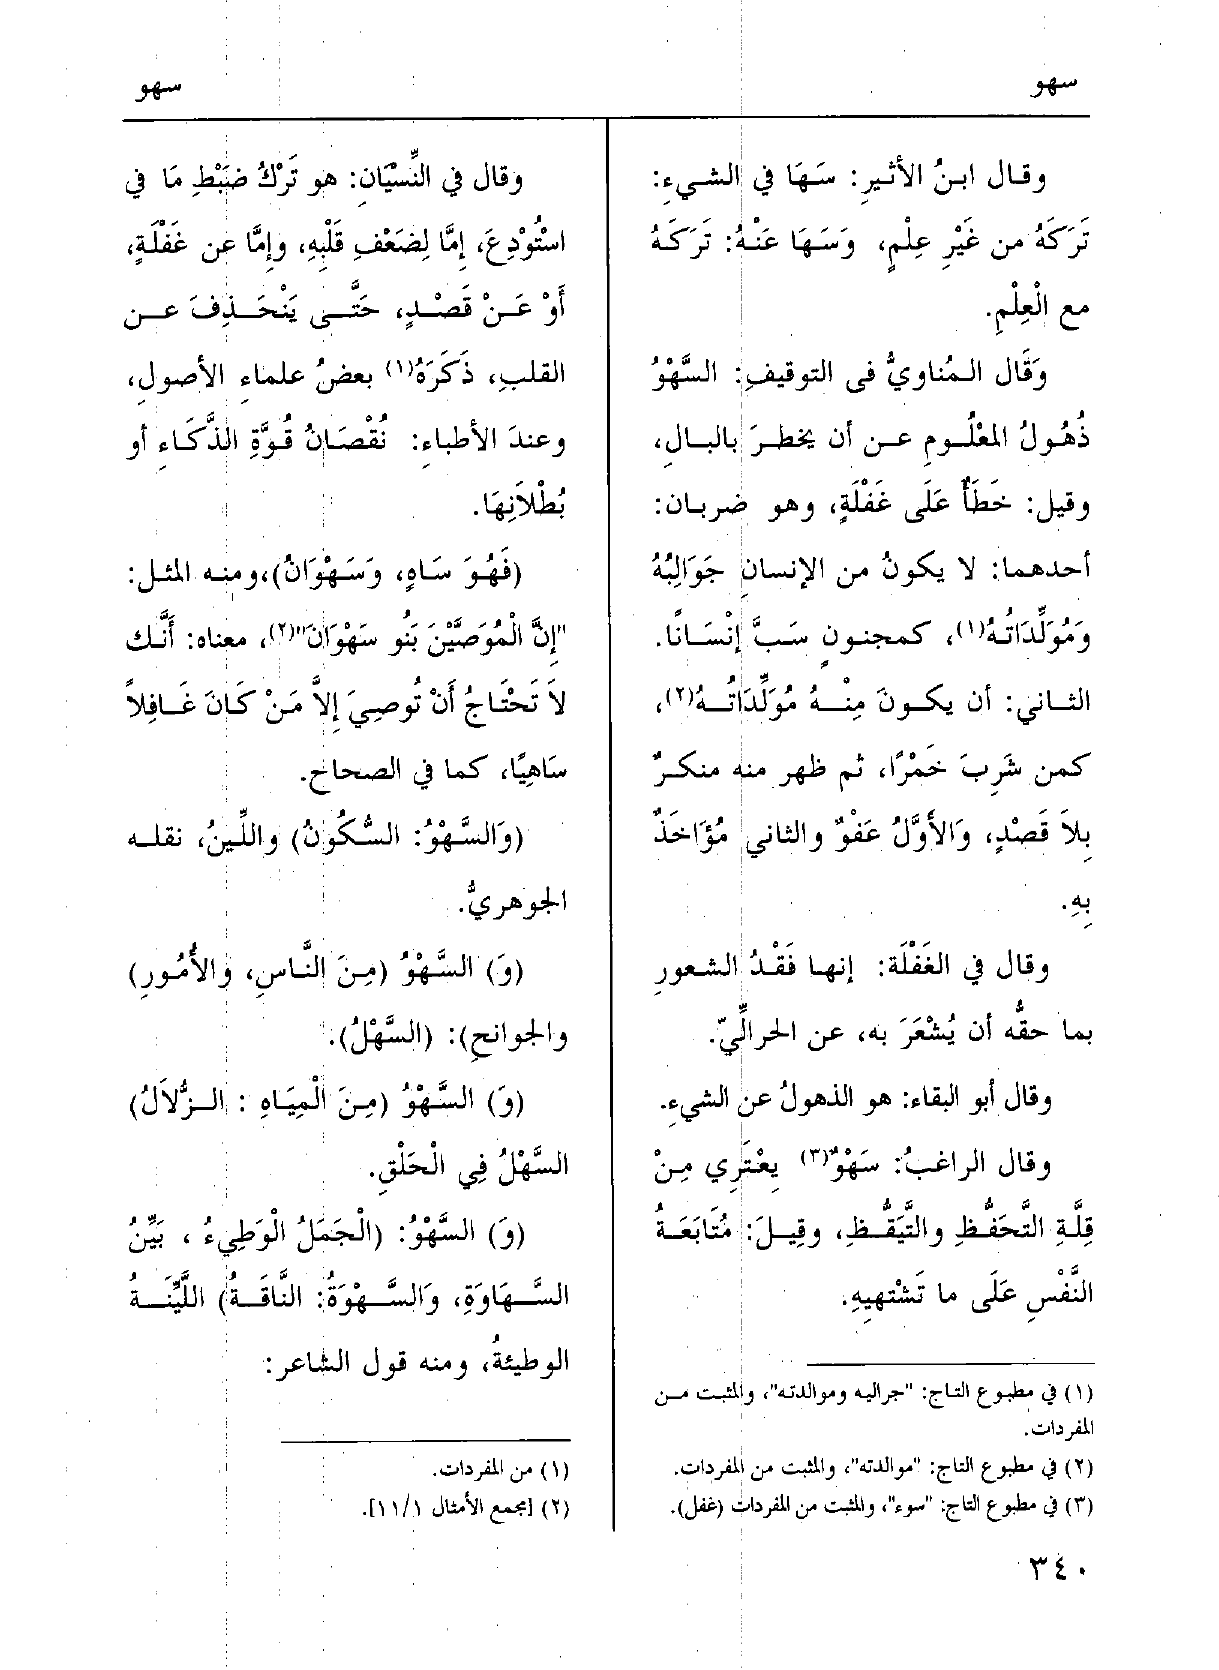 سهو
سهو
وقال ابنُ الأثيرِ: سَهَا في الشيءِ:
تَرَكَهُ من غَيْرِ عِلْمٍ، وَسَهَا عَنْهُ: تَرَكَهُ
مع الْعِلْمِ.
وَقَال المُناويُّ فى التوقيفِ: السَّهْوُ
ذُهُولُ المَعْلُومِ عن أن يخطرَ بالبالِ،
وقيل: خَطَأٌ عَلَى غَفْلَةٍ، وهو ضربان:
أحدهما: لا يكونُ من الإنسانِ جَوَالِبُهُ
وَمُوَلِّدَاتُهُ(١)، كمجنونٍ سَبَّ إِنْسَانًا.
الثاني: أن يكونَ مِنْهُ مُوَلِّدَاتُهُ(٢)،
كمن شَرِبَ خَمْرًا، ثم ظهر منه منكرٌ
بِلاَ قَصْدٍ، وَالأوَّلُ عَفْوٌ والثاني مُؤَاخَذٌ
بِهِ.
وقال في الغَفْلَة: إنها فَقْدُ الشعورِ
بما حقُّه أن يُشْعَرَ به، عن الحرالِّيّ.
وقال أبو البقاء: هو الذهولُ عن الشيءِ.
وقال الراغبُ: سَهْوٌ(٣) يَعْتَرِي مِنْ
قِلَّةِ التَّحَفُّظِ والتَّيَقُّظِ، وقِيلَ: مُتَابَعَةُ
النَّفْسِ عَلَى ما تَشْتهِيهِ.
(١) في مطبوع التاج: "جراليه وموالدته"، والمثبت من
المفردات.
(٢) في مطبوع التاج: "موالدته"، والمثبت من المفردات.
(٣) في مطبوع التاج: "سوء"، والمثبت من المفردات (غفل).
وقال في النِّسْيَانِ: هو تَرْكُ ضَبْطِ مَا في
اسْتُودِعَ، إِمَّا لِضَعْفِ قَلْبِهِ، وإِمَّا عن غَفْلَةٍ،
أَوْ عَنْ قَصْدٍ، حَتَّى يَنْحَذِفَ عن
القلبِ، ذَكَرَهُ(١) بعضُ علماءِ الأصولِ،
وعندَ الأطباءِ: نُقْصَانُ قُوَّةِ الذَّكَاءِ أو
بُطْلاَنِهَا.
(فَهُوَ سَاهٍ، وَسَهْوَانُ)،ومنه المثل:
"إِنَّ الْمُوَصَّيْنَ بَنُو سَهْوَانَ"(٢)، معناه: أَنَّك
لاَ تَحْتَاجُ أَنْ تُوصِيَ إِلاَّ مَنْ كَانَ غَافِلاً
سَاهِيًا، كما في الصحاحِ.
(وَالسَّهْوُ: السُّكُونُ) واللِّينُ، نقله
الجوهريُّ.
(وَ) السَّهْوُ (مِنَ النَّاسِ، والأُمُورِ)
والجوانحِ): (السَّهْلُ).
(وَ) السَّهْوُ (مِنَ الْمِيَاهِ : الزُّلاَلُ)
السَّهْلُ فِي الْحَلْقِ.
(وَ) السَّهْوُ: (الْجَمَلُ الْوَطِيءُ ، بَيِّنُ
السَّهَاوَةِ، وَالسَّهْوَةُ: النَّاقَةُ) اللَّيِّنَةُ
الوطيئةُ، ومنه قول الشاعر:
(١) من المفردات.
(٢) [مجمع الأمثال ١١/١].
٣٤٠